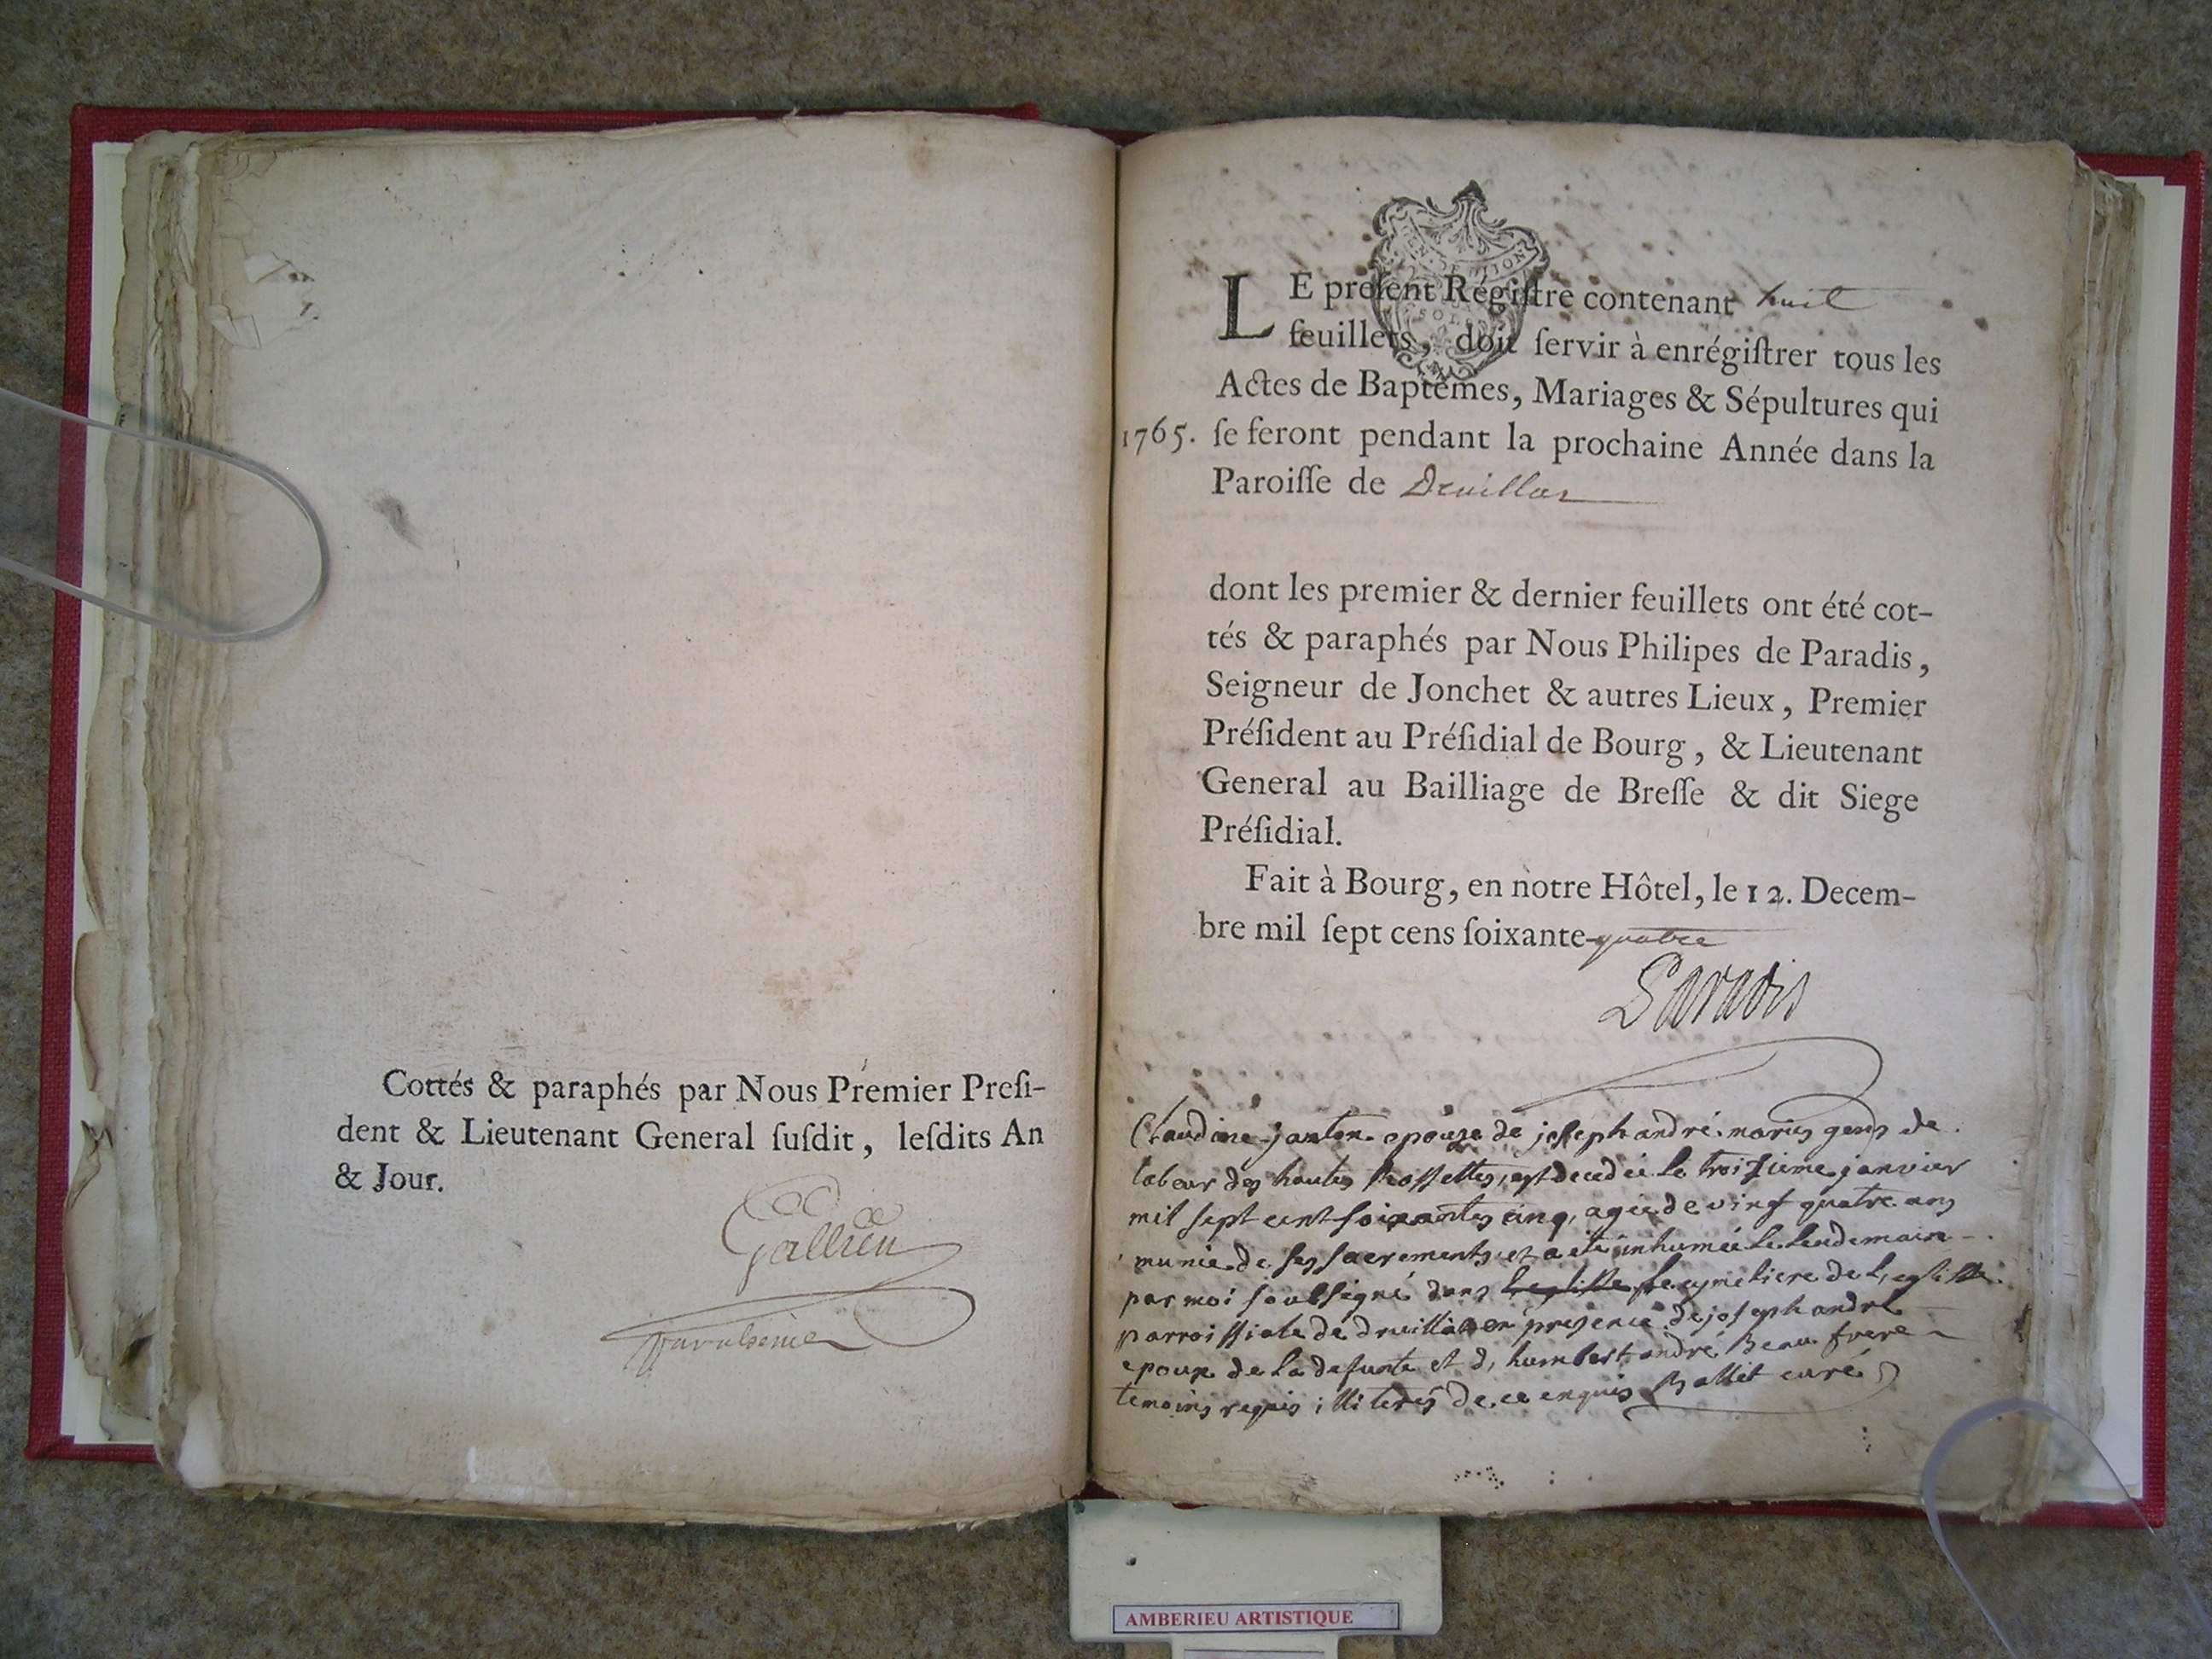 Cottés & paraphés par Nous Premier Presi-
dent & Lieutenant General susdit, lesdits An
& Jour.
Gallien
LE présent Régistre contenant huit
feuillets, doit servir à enrégistrer tous les
Actes de Baptêmes, Mariages & Sépultures qui
1765. se feront pendant la prochaine Année dans la
Paroisse de Druillas
dont les premier & dernier feuillets ont été cot-
tés & paraphés par Nous Philipes de Paradis,
Seigneur de Jonchet & autres Lieux, Premier
Président au Présidial de Bourg, & Lieutenant
General au Bailliage de Bresse & dit Siege
Présidial.
Fait à Bourg, en notre Hôtel, le 12. Decem-
bre mil sept cens soixante-quatre
Paradis
Claudine janton epouse de joseph andré mariés gens de
labeur des hautes est decedée le troisieme janvier
mil sept cent soixantes cinq, agée de vingt quatre ans
munie de ses sacrements et a eté inhumée le lendemain
par moi soubsigné dans l'eglisse le cymetiere de l'eglisse
parroissiale de druillas en presence de joseph andré
epoux de la defunte et d'humbert andré Beau frere
temoins requis illiterés de ce enquis Ballet curé
AMBERIEU ARTISTIQUE